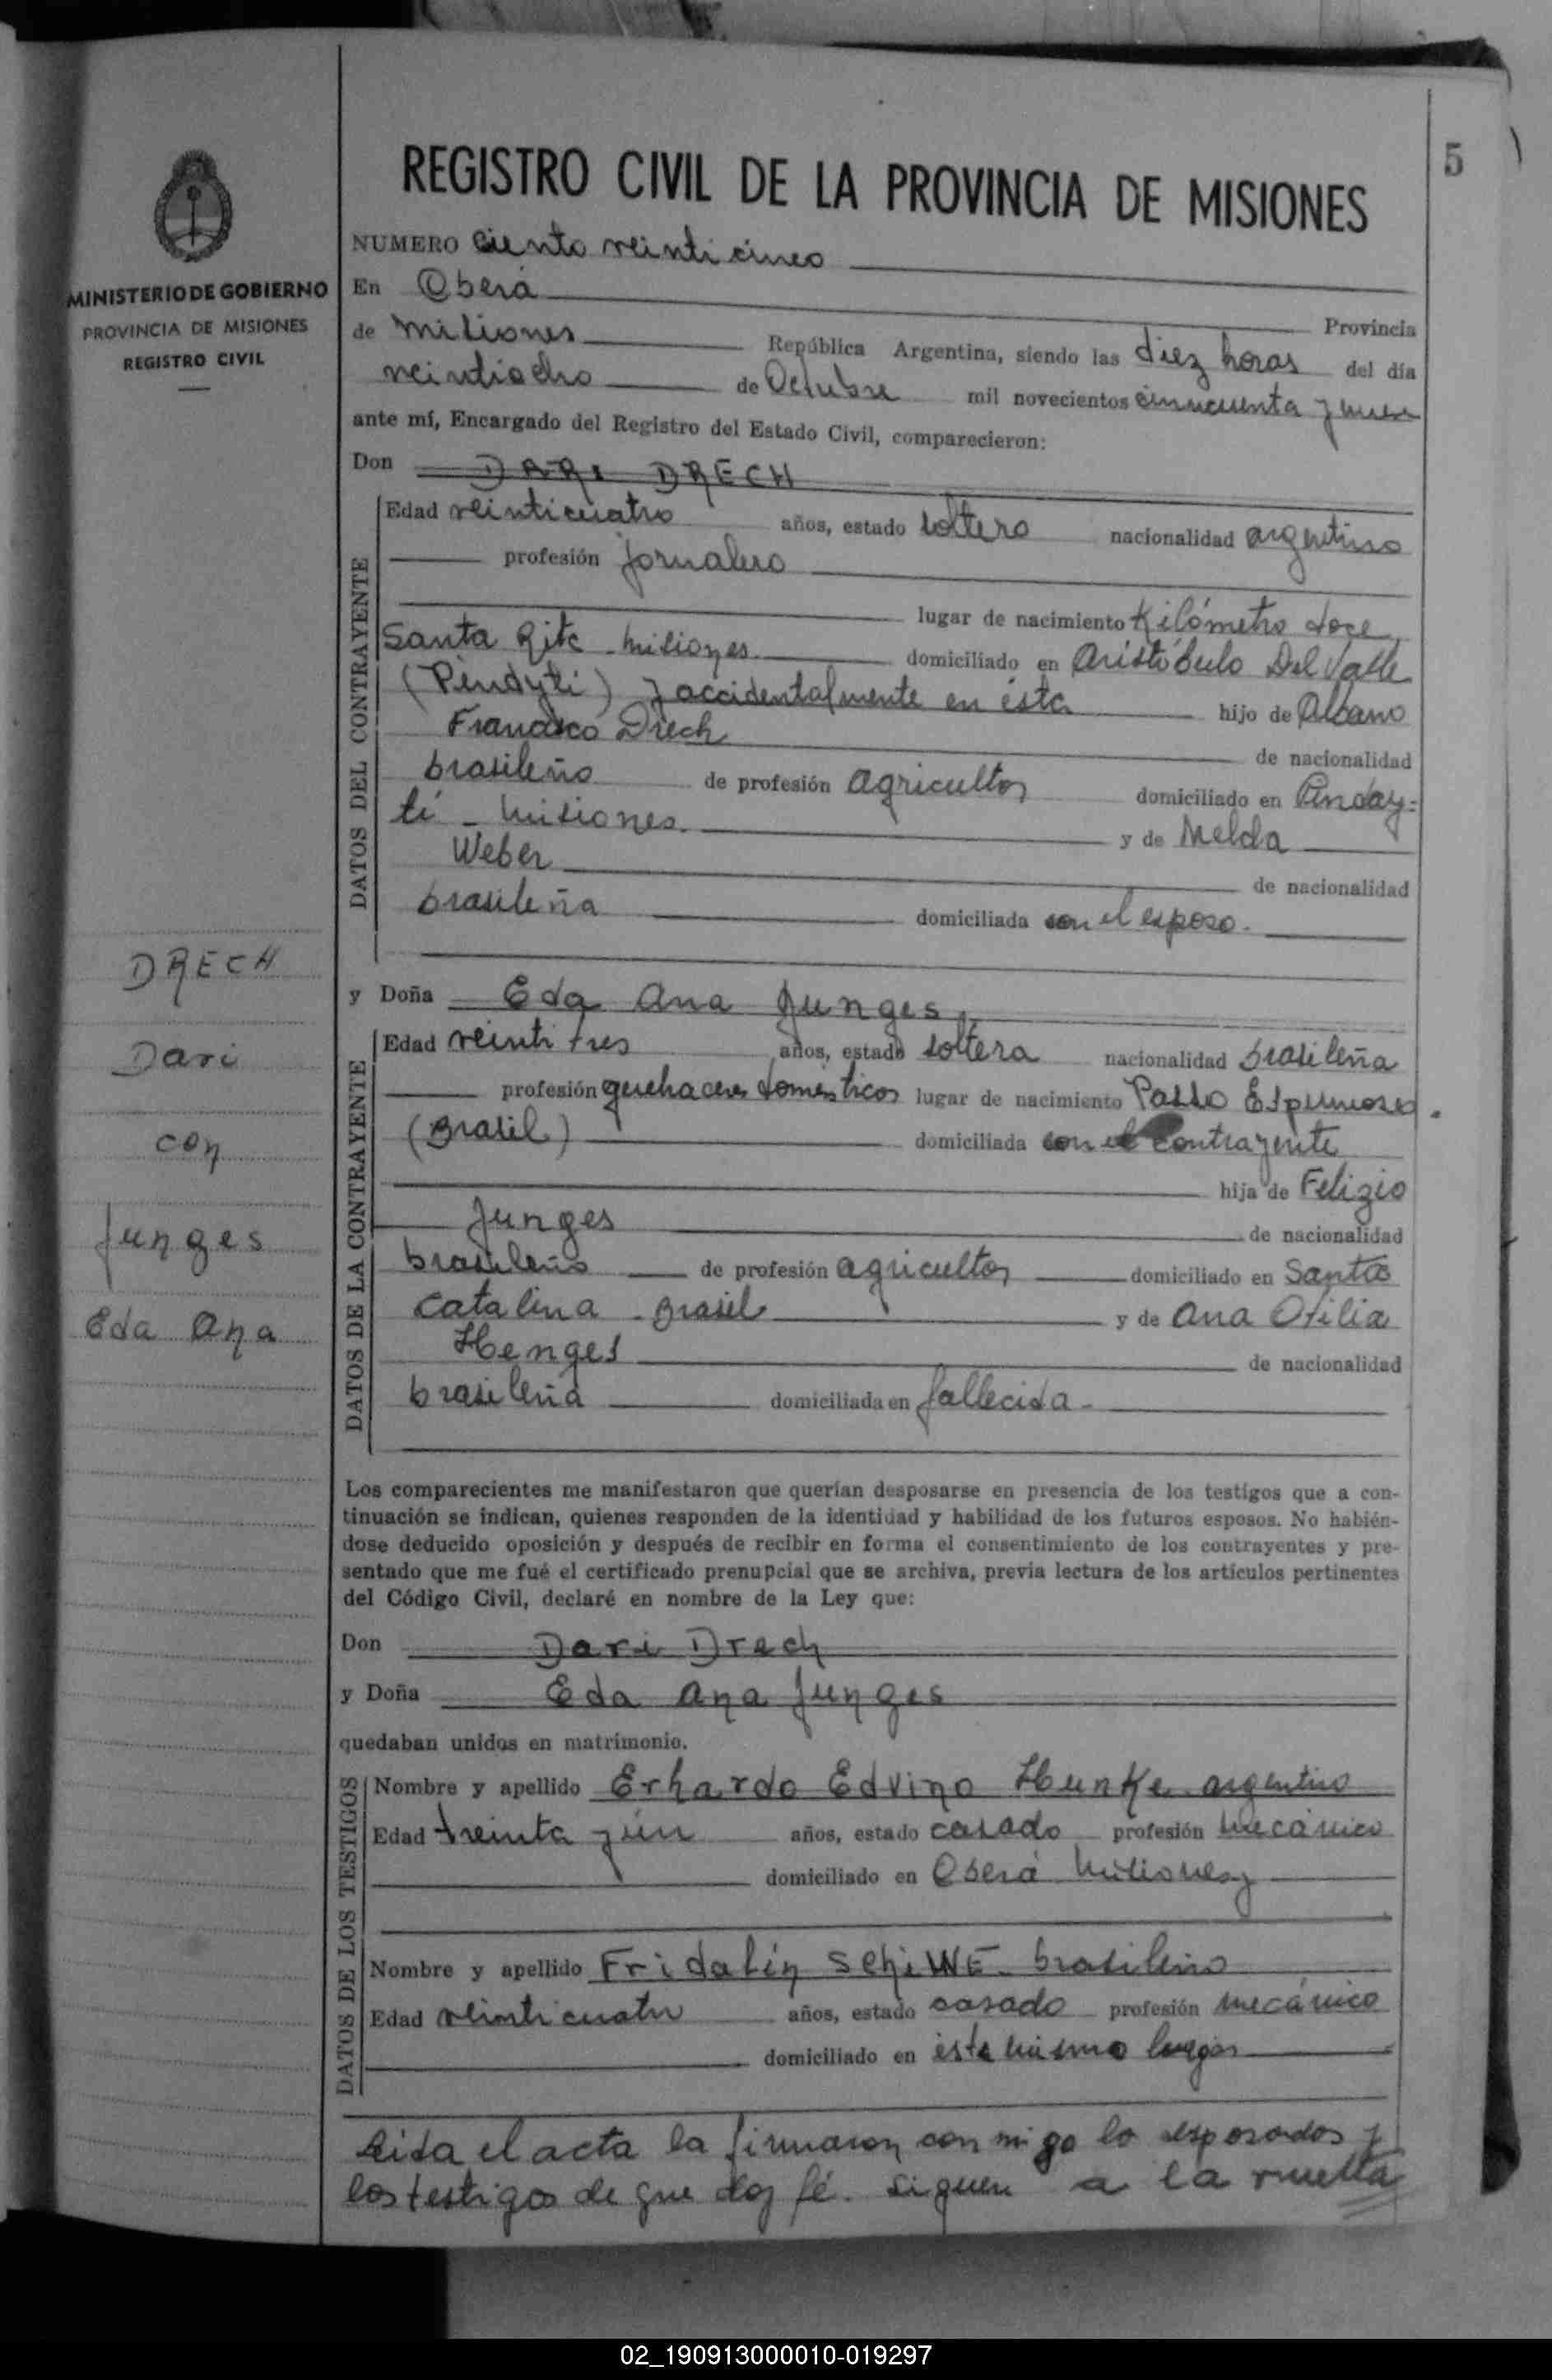 5
REGISTRO CIVIL DE LA PROVINCIA DE MISIONES
MINISTERIO DE GOBIERNO
PROVINCIA DE MISIONES
REGISTRO CIVIL
NUMERO Ciento veinticinco
En Oberá Provincia
de Misiones República Argentina, siendo las diez horas del día
veintiocho de Octubre mil novecientos cincuenta y nueve
ante mí, Encargado del Registro del Estado Civil, comparecieron:
Don DARI DRECH
DATOS DEL CONTRAYENTE
Edad veinticuatro años, estado soltero nacionalidad argentino
profesión jornalero
lugar de nacimiento Kilómetro doce
Santa Rita - Misiones domiciliado en Aristóbulo Del Valle
(Pindytí) y accidentalmente en ésta hijo de Albano
Francisco Drech de nacionalidad
brasileño de profesión agricultor domiciliado en Pinday=
tí - Misiones. y de Melda
Weber de nacionalidad
brasileña domiciliada con el esposo.
DRECH
Dari
con
Junges
Eda Ana
y Doña Eda Ana Junges
DATOS DE LA CONTRAYENTE
Edad veinti tres años, estado soltera nacionalidad brasileña
profesión quehaceres domésticos lugar de nacimiento Passo Espumoso.
(Brasil) domiciliada con el contrayente
hija de Felizio
Junges de nacionalidad
brasileño de profesión agricultor domiciliado en Santa
Catalina - Brasil y de Ana Otilia
Henges de nacionalidad
brasileña domiciliada en fallecida -
Los comparecientes me manifestaron que querían desposarse en presencia de los testigos que a con-
tinuación se indican, quienes responden de la identidad y habilidad de los futuros esposos. No habién-
dose deducido oposición y después de recibir en forma el consentimiento de los contrayentes y pre-
sentado que me fué el certificado prenupcial que se archiva, previa lectura de los artículos pertinentes
del Código Civil, declaré en nombre de la Ley que:
Don Dari Drech
y Doña Eda Ana Junges
quedaban unidos en matrimonio.
DATOS DE LOS TESTIGOS
Nombre y apellido Erhardo Edvino Hunke - argentino
Edad treinta y un años, estado casado profesión mecánico
domiciliado en Oberá Misiones y
Nombre y apellido Fridalin SchiWE - brasileño
Edad veinticuatro años, estado casado profesión mecánico
domiciliado en éste mismo lugar
Leida el acta la firmaron con migo lo desposados y
los testigos de que doy fé. Siguen a la vuelta
02_190913000010-019297